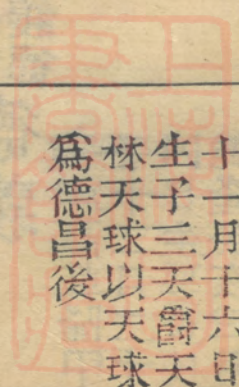 十一月十六日
生子三天爵天
林天球以天球
為德昌後